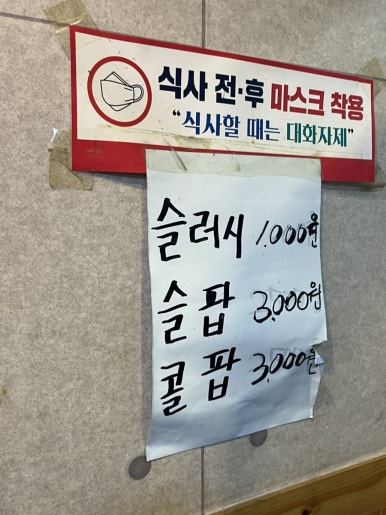 식사 전·후 마스크 착용
“식사할 때는 대화자제”
슬러시 1.000원
슬팝 3.000원
콜팝 3.000원